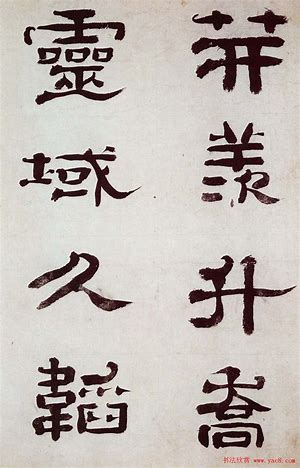 羨升喬
靈域久韜
书法欣赏
www.yac8.com